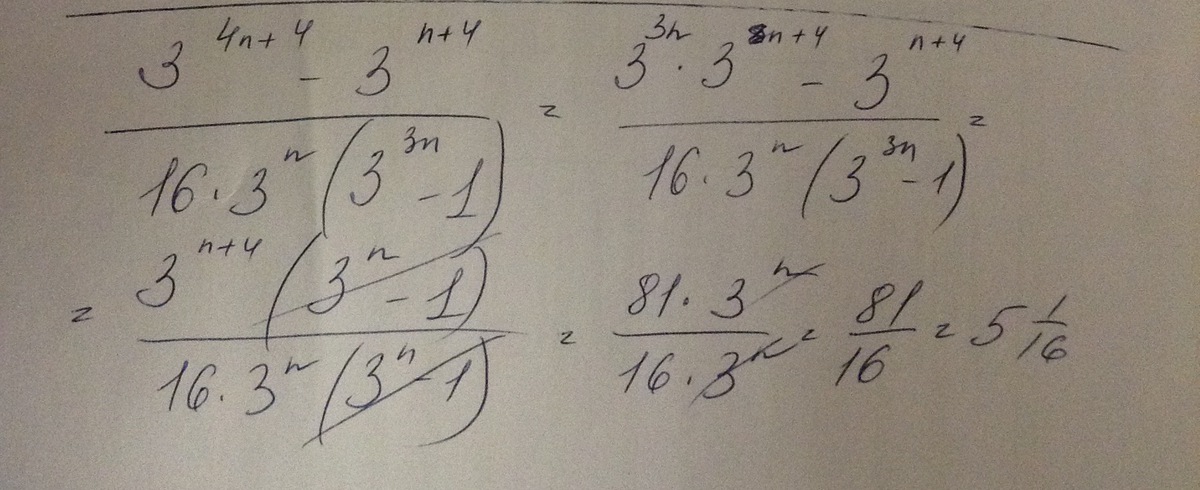 3^{4n+4} - 3^{n+4} / 16 · 3^n (3^{3n} - 1) = 3^{3n} · 3^{n+4} - 3^{n+4} / 16 · 3^n (3^{3n} - 1) =
= 3^{n+4} (3^n - 1) / 16 · 3^n (3^n - 1) = 81 · 3^n / 16 · 3^n = 81/16 = 5 1/16